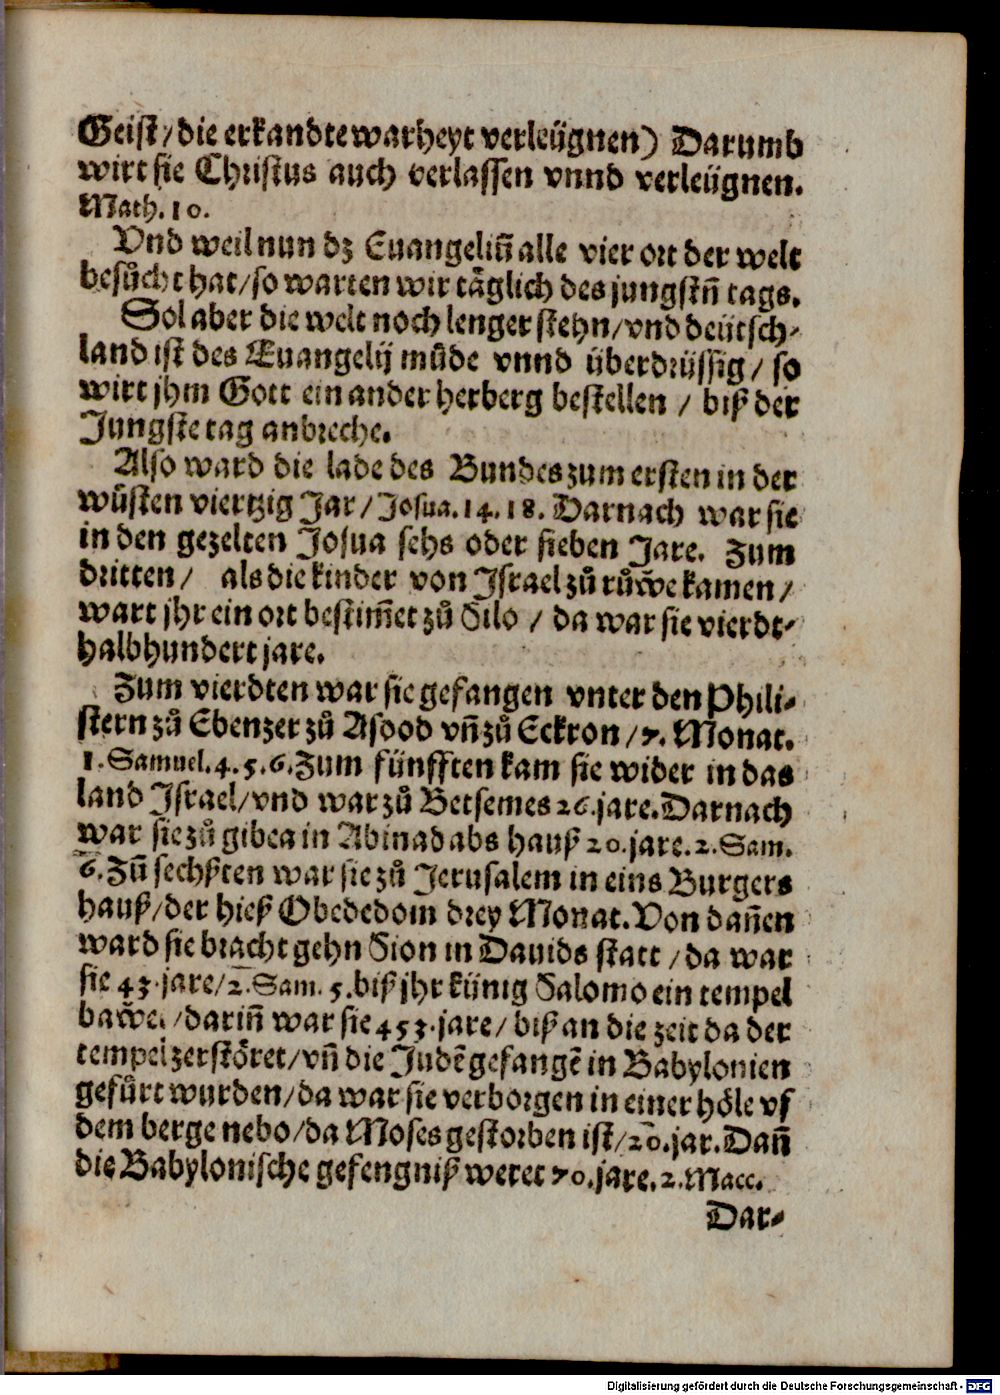 Geist/die erkandte warheyt verleügnen) Darumb
wirt sie Christus auch verlassen vnnd verleügnen.
Math. 10.
Vnd weil nun dz Euangeliũ alle vier ort der welt
besůcht hat/so warten wir täglich des jungstñ tags.
Sol aber die welt noch lenger stehn/vnd deütsch-
land ist des Euangelij můde vnnd überdrüssig/ so
wirt jhm Gott ein ander herberg bestellen / biß der
Jungste tag anbreche.
Also ward die lade des Bundes zum ersten in der
wůsten viertzig Jar/Josua. 14. 18. Darnach war sie
in den gezelten Josua sehs oder sieben Jare. Zum
dritten/ als die kinder von Israel zů růw̃e kamen/
wart jhr ein ort bestim̃et zů Silo / da war sie vierdt-
halbhundert jare.
Zum vierdten war sie gefangen vnter den Phili-
stern zů Ebenzer zů Asood vñ zů Eckron/7. Monat.
1. Samuel. 4. 5. 6. Zum fünfften kam sie wider in das
land Israel/vnd war zů Betsemes 26. jare. Darnach
war sie zů gibea in Abinadabs hauß 20. jare. 2. Sam.
6. Zũ sechßten war sie zů Jerusalem in eins Burgers
hauß/der hieß Obededom drey Monat. Von dañen
ward sie bracht gehn Sion in Dauids statt / da war
sie 43. jare/2. Sam. 5. biß jhr künig Salomo ein tempel
baw̃et /dariñ war sie 453. jare/ biß an die zeit da der
tempel zerstöret/vñ die Judẽ gefangẽ in Babylonien
gefůrt wurden/da war sie verborgen in einer höle vf
dem berge nebo/da Moses gestorben ist/20. jar. Dañ
die Babylonische gefengniß weret 70. jare. 2. Macc.
Dar-
Digitalisierung gefördert durch die Deutsche Forschungsgemeinschaft - DFG